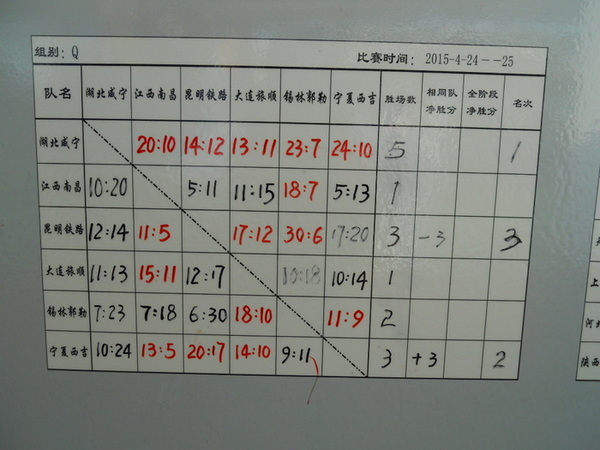 组别: Q 比赛时间: 2015-4-24--25
队名 湖北咸宁 江西南昌 昆明铁路 大连旅顺 锡林郭勒 宁夏西吉 胜场数 相同队净胜分 全阶段净胜分 名次
湖北咸宁 20:10 14:12 13:11 23:7 24:10 5 1
江西南昌 10:20 5:11 11:15 18:7 5:13 1
昆明铁路 12:14 11:5 17:12 30:6 17:20 3 -3 3
大连旅顺 11:13 15:11 12:17 10:18 10:14 1
锡林郭勒 7:23 7:18 6:30 18:10 11:9 2
宁夏西吉 10:24 13:5 20:17 14:10 9:11 3 +3 2
上
河北
陕西